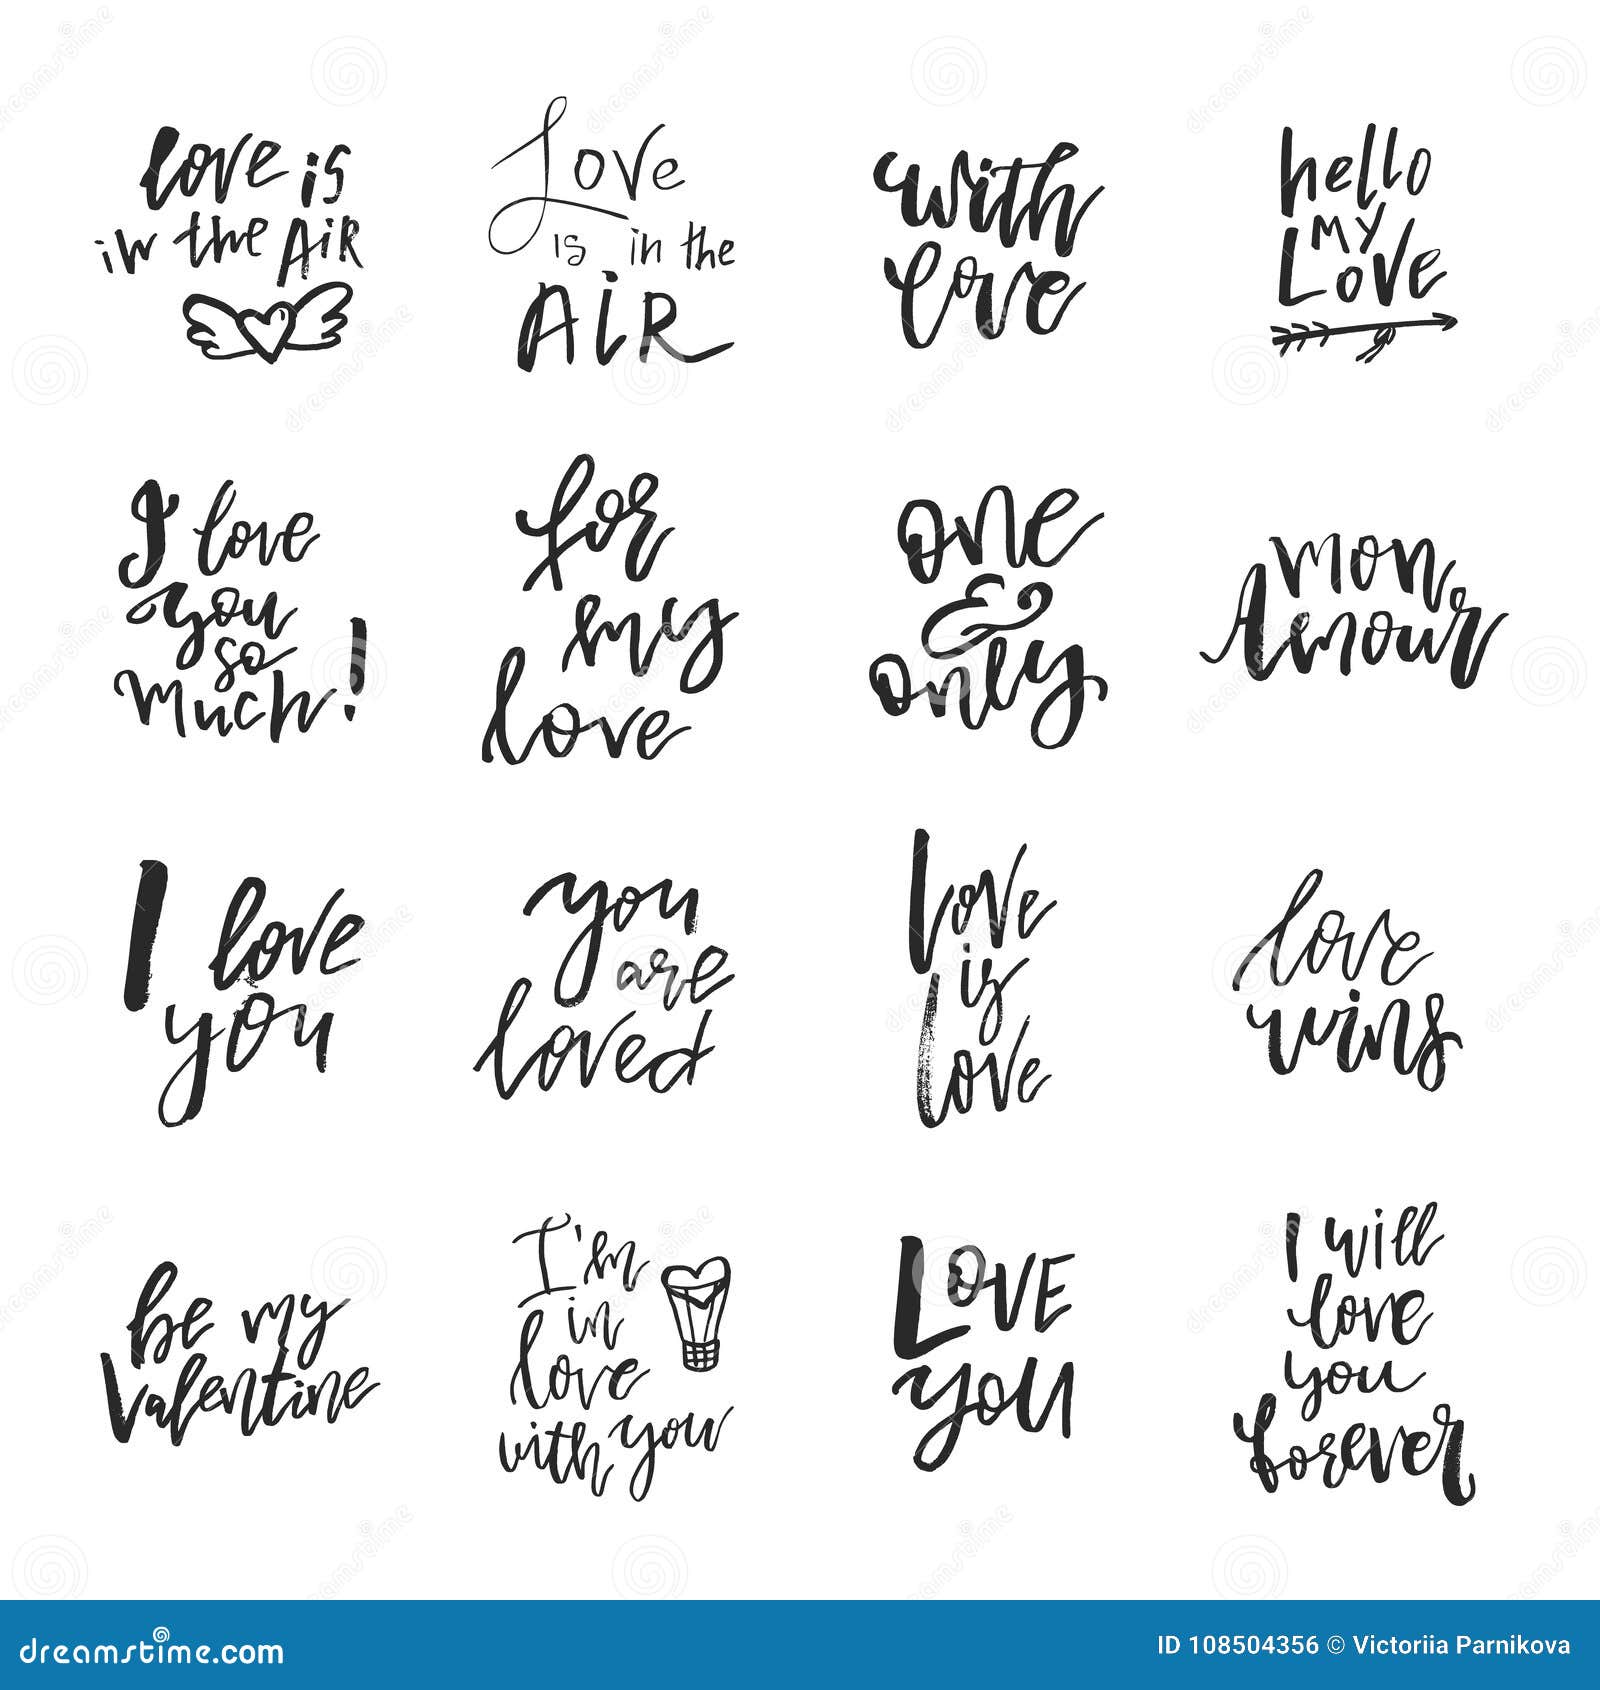 love is
in the AiR
Love
is in the
AiR
with
love
hello
my
Love
I love
you
so
much!
for
my
love
one
&
only
mon
Amour
I love
you
you
are
loved
Love
is
Love
love
wins
be my
Valentine
I'm
in
love
with you
LOVE
you
I will
love
you
forever
dreamstime.com
ID 108504356 © Victoriia Parnikova